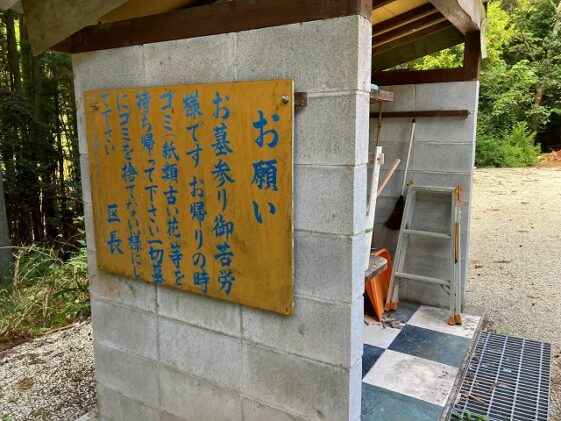 お願い
お墓参り御苦労
様です お帰りの時
ゴミ・紙類古い花等を
持ち帰って下さい 一切墓
にゴミを捨てない様にし
て下さい
区長